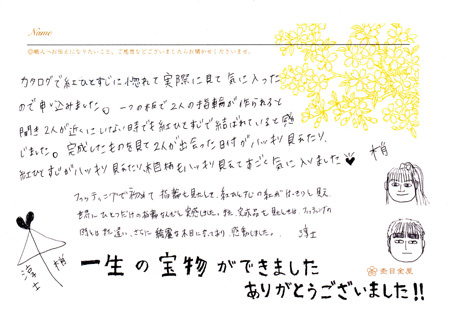 Name
◎職人へお伝えになりたいこと、ご感想などございましたらお聞かせくださいませ。
カタログで紅ひとすじに惚れて実際に見て気に入った
ので申し込みました。一つの板で2人の指輪が作られると
聞き2人が近くにいない時でも紅ひとすじで結ばれていると感
じました。完成したものを見て2人が出会った日付がハッキリ見えたり、
紅ひとすじがハッキリ見えたり、木目柄もハッキリ見えてすごく気に入りました♥
フィッティングで初めて指輪を見たとして、紅ひとすじの私がはっきりし見え
世界にひとつだけの指輪なんだと実感しました。また、完成品を見たときは、フィッティングの
時とはまた違い、さらに綺麗な木目になっており、感動しました。 淳士
梢
淳士
梢
一生の宝物ができました
ありがとうございました!!
杢目金屋